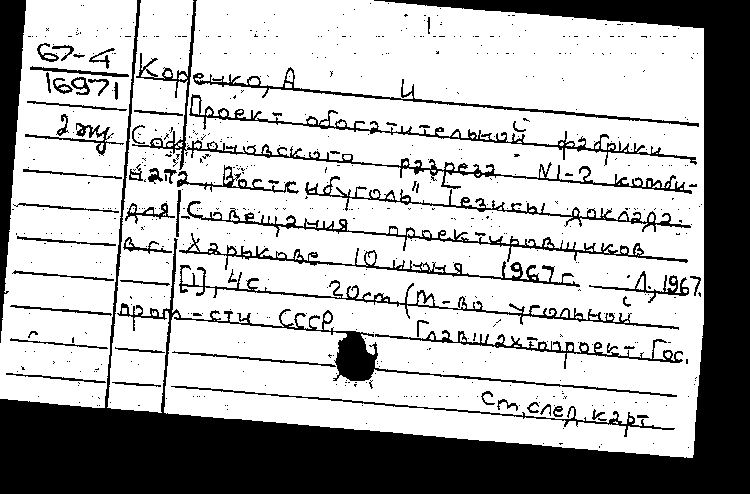 1
67-4
16971
2 экз
Коренко, А И
Проект обогатительной фабрики
Софроновского разреза N1-2 комби-
ната „Востсибуголь". Тезисы доклада.
для Совещания проектировщиков
в г. Харькове 10 июня 1967г. Л., 1967.
[1], 4с. 20см. (М-во угольной
пром-сти СССР. Главшахтопроект. Гос.
См. след. карт.